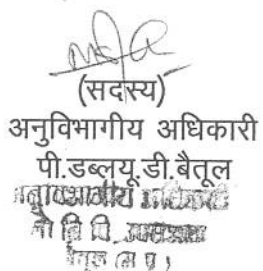 (सदस्य)
अनुविभागीय अधिकारी
पी.डब्लयू.डी.बैतूल
अनुविभागीय अधिकारी
लो नि वि
बैतूल (म प्र)